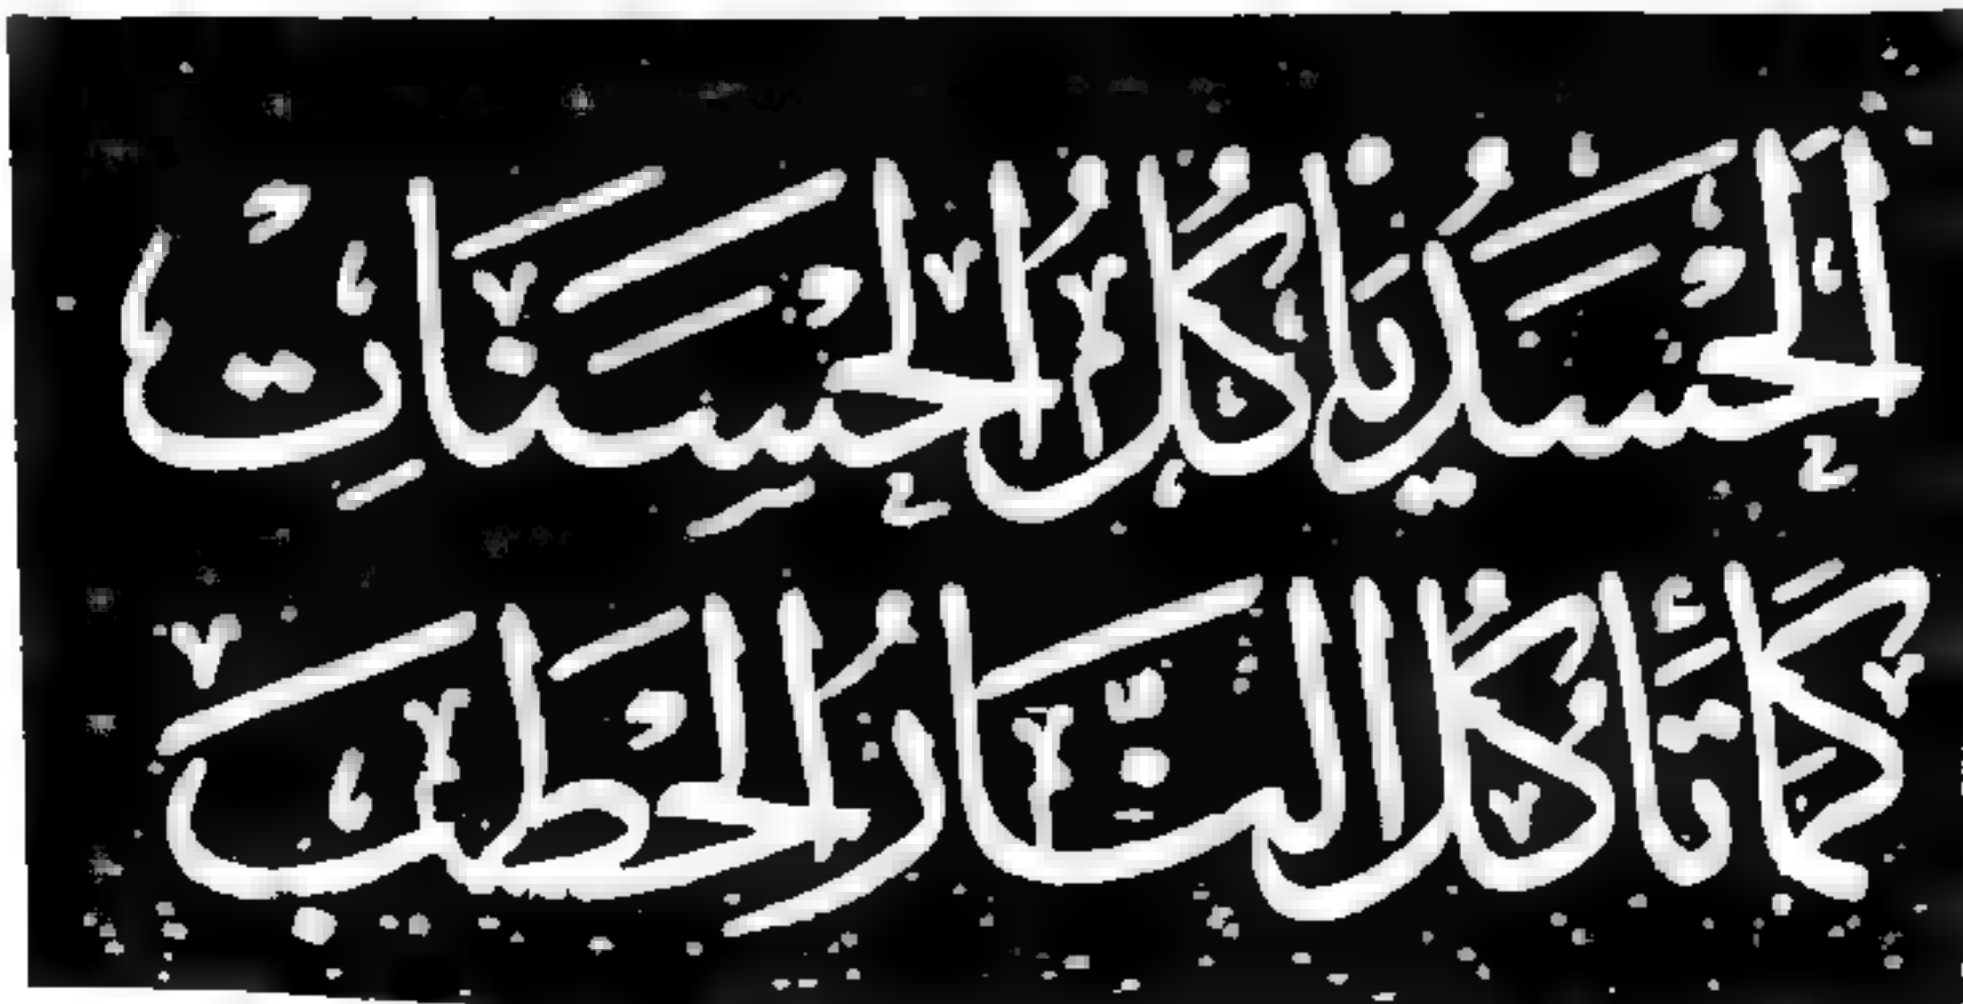 اَلْحَسَدُ يَاْكُلُ الْحَسَنَاتِ
كَمَا تَاْكُلُ النَّارُ الْحَطَبَ